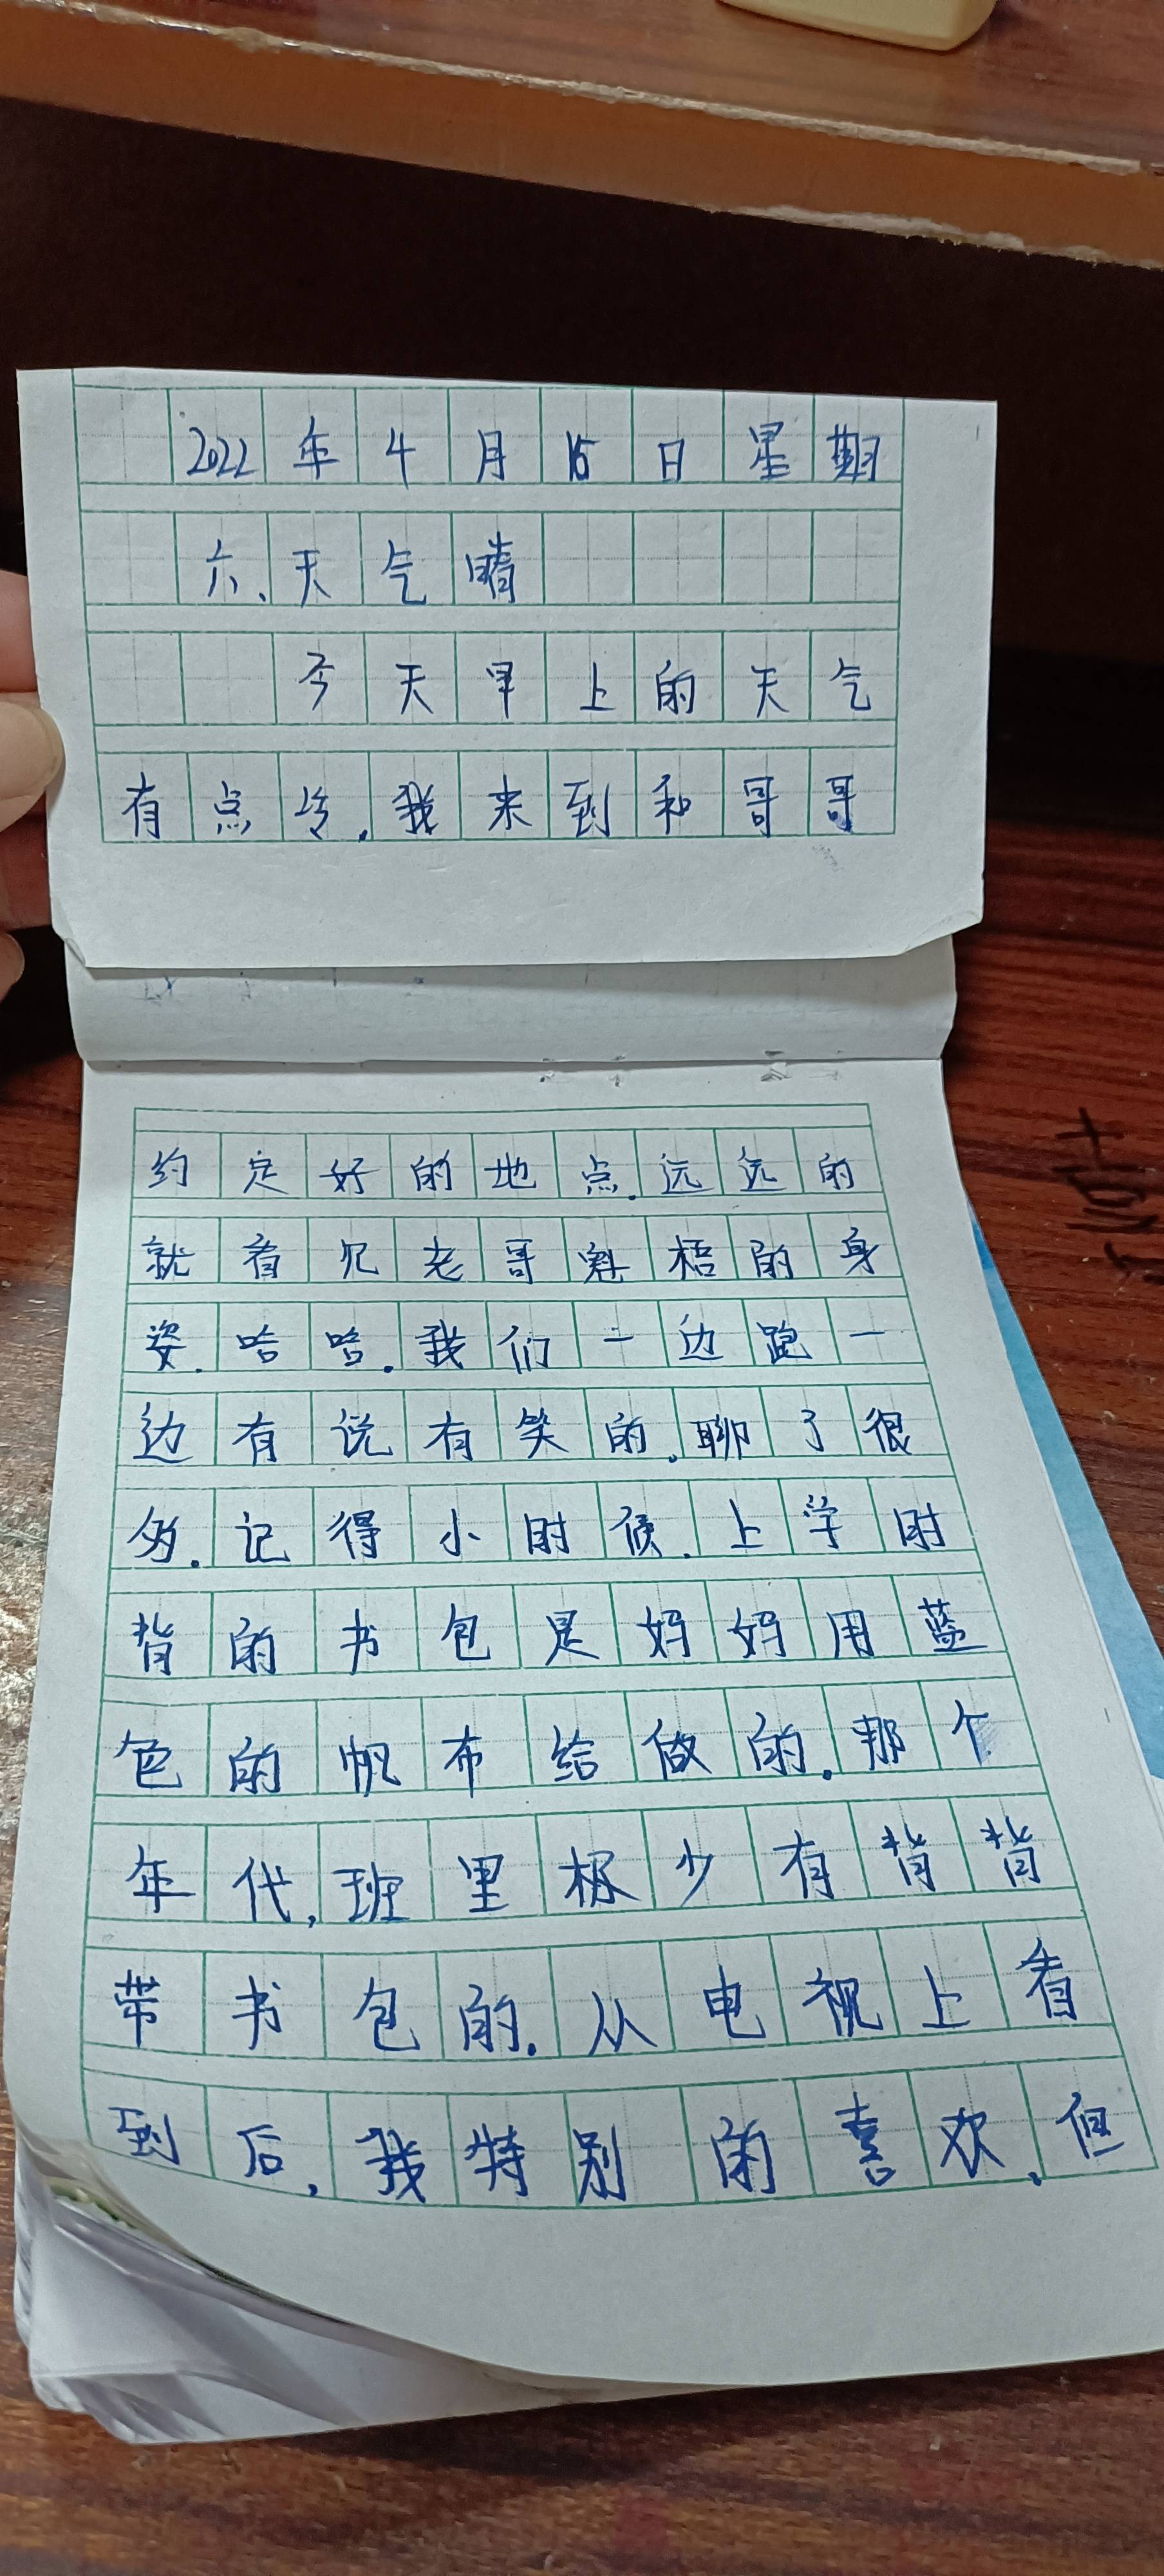 2022年4月16日星期
六、天气晴
今天早上的天气
有点冷.我来到和哥哥
约定好的地点.远远的
就看见老哥魁梧的身
姿.哈哈.我们一边跑一
边有说有笑的.聊了很
多.记得小时候.上学时
背的书包是妈妈用蓝
色的帆布给做的.那个
年代,班里极少有背背
带书包的.从电视上看
到后,我特别的喜欢.但